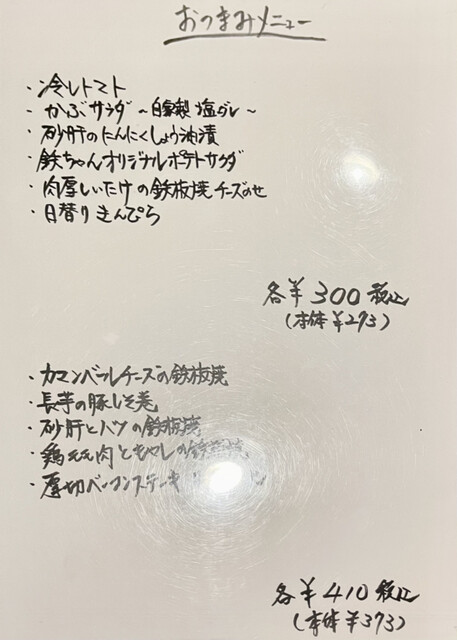 おつまみメニュー
・冷しトマト
・かぶサラダ ~自家製 塩ダレ~
・砂肝のにんにくしょう油漬
・鉄ちゃんオリジナルポテトサラダ
・肉厚しいたけの鉄板焼チーズのせ
・日替りきんぴら
各¥300税込
(本体¥273)
・カマンベールチーズの鉄板焼
・長芋の豚しそ巻
・砂肝とハツの鉄板焼
・鶏もも肉ともやしの鉄板焼
・厚切ベーコンステーキ
各¥410税込
(本体¥373)